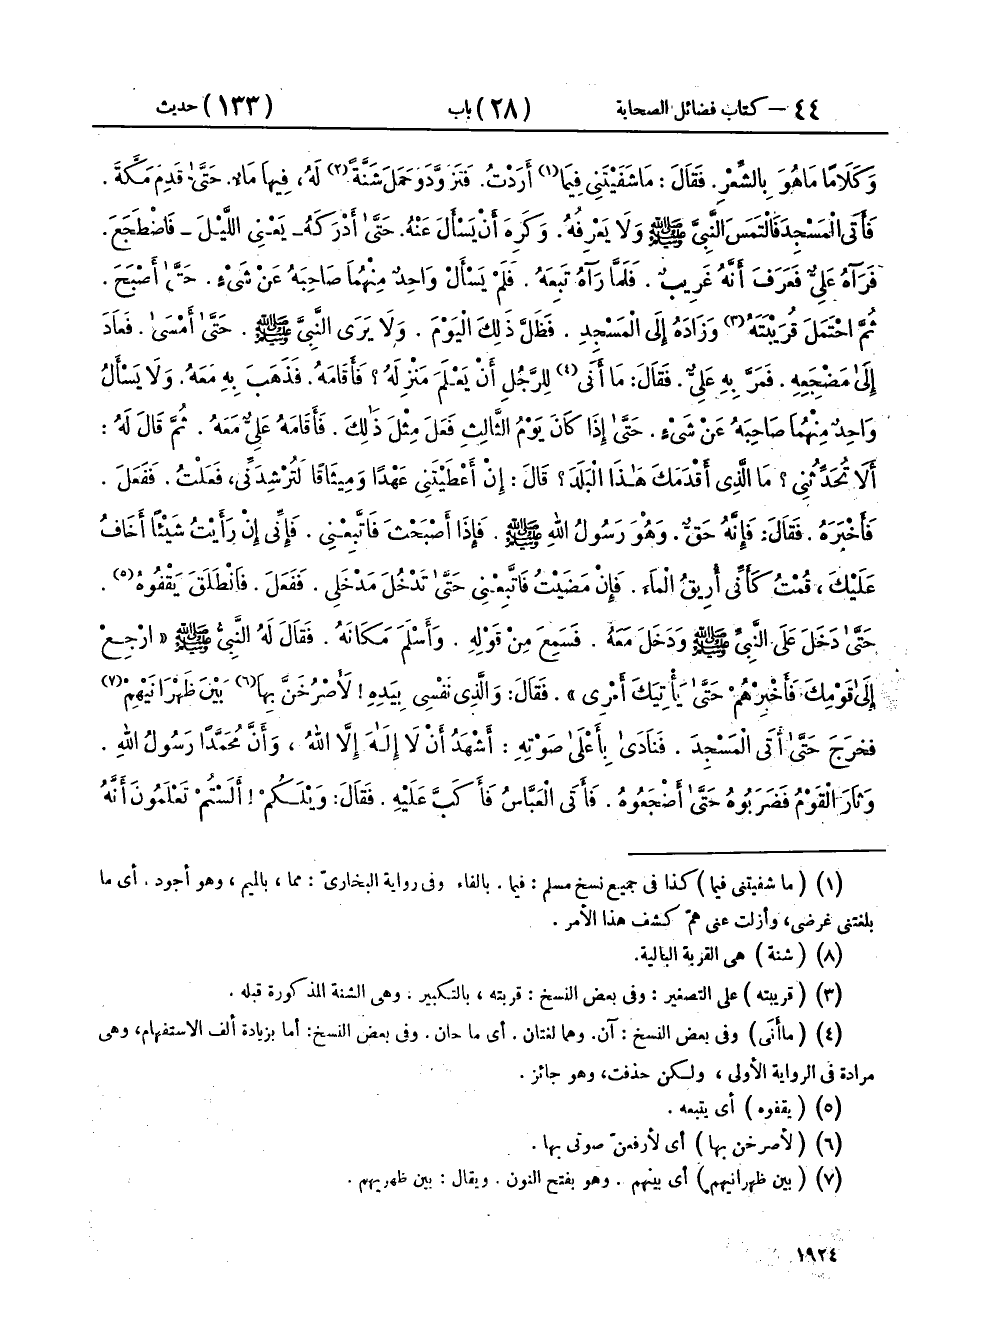 ٤٤ – كتاب فضائل الصحابة (٢٨) باب (١٣٣) حديث
وَكَلَامًا مَا هُوَ بِالشِّعْرِ. فَقَالَ: مَا شَفَيْتَنِي فِيمَا(١) أَرَدْتُ. فَتَزَوَّدَ وَحَمَلَ شَنَّةً(٢) لَهُ، فِيهَا مَاءٌ. حَتَّىٰ قَدِمَ مَكَّةَ.
فَأَتَى الْمَسْجِدَ فَالْتَمَسَ النَّبِيَّ ﷺ وَلَا يَعْرِفُهُ. وَكَرِهَ أَنْ يَسْأَلَ عَنْهُ. حَتَّىٰ أَدْرَكَهُ – يَعْنِي اللَّيْلَ – فَاضْطَجَعَ.
فَرَآهُ عَلِيٌّ فَعَرَفَ أَنَّهُ غَرِيبٌ. فَلَمَّا رَآهُ تَبِعَهُ. فَلَمْ يَسْأَلْ وَاحِدٌ مِنْهُمَا صَاحِبَهُ عَنْ شَيْءٍ. حَتَّىٰ أَصْبَحَ.
ثُمَّ احْتَمَلَ قُرَيْبَتَهُ(٣) وَزَادَهُ إِلَى الْمَسْجِدِ. فَظَلَّ ذَلِكَ الْيَوْمَ. وَلَا يَرَى النَّبِيَّ ﷺ. حَتَّىٰ أَمْسَىٰ. فَعَادَ
إِلَىٰ مَضْجَعِهِ. فَمَرَّ بِهِ عَلِيٌّ. فَقَالَ: مَا أَنَى(٤) لِلرَّجُلِ أَنْ يَعْلَمَ مَنْزِلَهُ؟ فَأَقَامَهُ. فَذَهَبَ بِهِ مَعَهُ. وَلَا يَسْأَلُ
وَاحِدٌ مِنْهُمَا صَاحِبَهُ عَنْ شَيْءٍ. حَتَّىٰ إِذَا كَانَ يَوْمُ الثَّالِثِ فَعَلَ مِثْلَ ذَٰلِكَ. فَأَقَامَهُ عَلِيٌّ مَعَهُ. ثُمَّ قَالَ لَهُ:
أَلَا تُحَدِّثُنِي؟ مَا الَّذِي أَقْدَمَكَ هَٰذَا الْبَلَدَ؟ قَالَ: إِنْ أَعْطَيْتَنِي عَهْدًا وَمِيثَاقًا لَتُرْشِدَنِّي، فَعَلْتُ. فَفَعَلَ.
فَأَخْبَرَهُ. فَقَالَ: فَإِنَّهُ حَقٌّ. وَهُوَ رَسُولُ اللهِ ﷺ. فَإِذَا أَصْبَحْتَ فَاتَّبِعْنِي. فَإِنِّي إِنْ رَأَيْتُ شَيْئًا أَخَافُ
عَلَيْكَ، قُمْتُ كَأَنِّي أُرِيقُ الْمَاءَ. فَإِنْ مَضَيْتُ فَاتَّبِعْنِي حَتَّىٰ تَدْخُلَ مَدْخَلِي. فَفَعَلَ. فَانْطَلَقَ يَقْفُوهُ(٥).
حَتَّىٰ دَخَلَ عَلَى النَّبِيِّ ﷺ وَدَخَلَ مَعَهُ. فَسَمِعَ مِنْ قَوْلِهِ. وَأَسْلَمَ مَكَانَهُ. فَقَالَ لَهُ النَّبِيُّ ﷺ «ارْجِعْ
إِلَىٰ قَوْمِكَ فَأَخْبِرْهُمْ حَتَّىٰ يَأْتِيَكَ أَمْرِي». فَقَالَ: وَالَّذِي نَفْسِي بِيَدِهِ! لَأَصْرُخَنَّ بِهَا(٦) بَيْنَ ظَهْرَانَيْهِمْ(٧)
فَخَرَجَ حَتَّىٰ أَتَى الْمَسْجِدَ. فَنَادَىٰ بِأَعْلَىٰ صَوْتِهِ: أَشْهَدُ أَنْ لَا إِلَٰهَ إِلَّا اللهُ، وَأَنَّ مُحَمَّدًا رَسُولُ اللهِ.
وَثَارَ الْقَوْمُ فَضَرَبُوهُ حَتَّىٰ أَضْجَعُوهُ. فَأَتَى الْعَبَّاسُ فَأَكَبَّ عَلَيْهِ. فَقَالَ: وَيْلَكُمْ! أَلَسْتُمْ تَعْلَمُونَ أَنَّهُ
(١) (ما شفيتنى فيما) كذا فى جميع نسخ مسلم: فيما. بالفاء وفى رواية البخارىّ: مما، بالميم، وهو أجود. أى ما
بلغتنى غرضى، وأزلت عنى همّ كشف هذا الأمر.
(٨) (شنة) هى القربة البالية.
(٣) (قريبته) على التصغير: وفى بعض النسخ: قربته، بالتكبير. وهى الشنة المذكورة قبله.
(٤) (ما أنى) وفى بعض النسخ: آن. وهما لغتان. أى ما حان. وفى بعض النسخ: أما بزيادة ألف الاستفهام، وهى
مرادة فى الرواية الأولى، ولكن حذفت، وهو جائز.
(٥) (يقفوه) أى يتبعه.
(٦) (لأصرخن بها) أى لأرفعنّ صوتى بها.
(٧) (بين ظهرانيهم) أى بينهم. وهو بفتح النون. ويقال: بين ظهريهم.
١٩٢٤